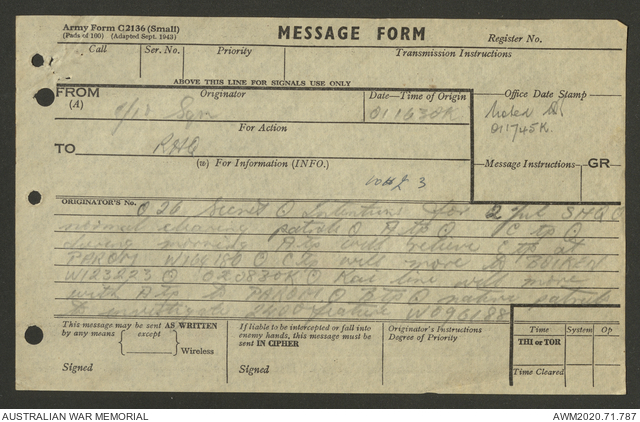 Army Form C2136 (Small)
(Pads of 100) (Adapted Sept. 1943)
MESSAGE FORM
Register No.
Call
Ser. No.
Priority
Transmission Instructions
ABOVE THIS LINE FOR SIGNALS USE ONLY
FROM
(A)
Originator
Date—Time of Origin
Office Date Stamp
Sqn
011630K
011745K.
For Action
TO
RHQ
(w) For Information (INFO.)
Message Instructions
GR
3
ORIGINATOR'S No.
O 26 Secret O Intentions for 2 Jul SHQ O
normal clearing patrols O A tp O C tp O
during morning A tp will relieve C tp at
PAROM W100180 O C tp will move to BOIKEN
W123223 O 020830K O Kai line will move
with A tp to PAROM O B tp O native patrol
investigate feature W096188
This message may be sent AS WRITTEN
by any means except
Wireless
Signed
If liable to be intercepted or fall into
enemy hands, this message must be
sent IN CIPHER
Signed
Originator's Instructions
Degree of Priority
Time
System
Op
THI or TOR
Time Cleared
AUSTRALIAN WAR MEMORIAL
AWM2020.71.787